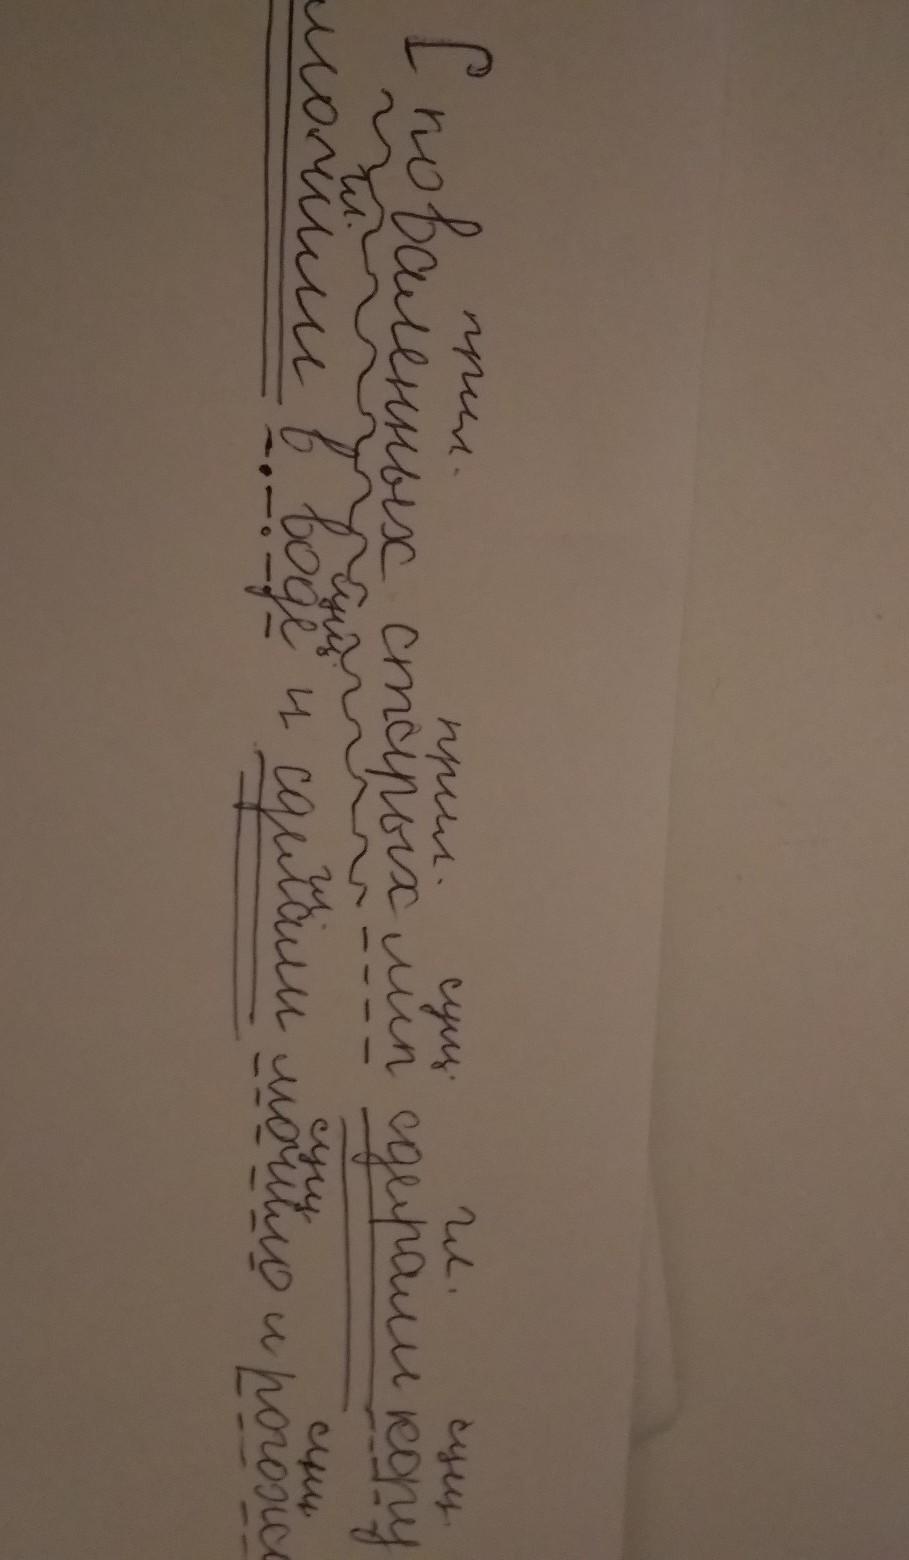 прил. прил. сущ. гл. сущ.
[ поваленных старых лип сдирали кору
гл. сущ. гл. сущ сущ
мочили в воде и сделали мочало и рогож